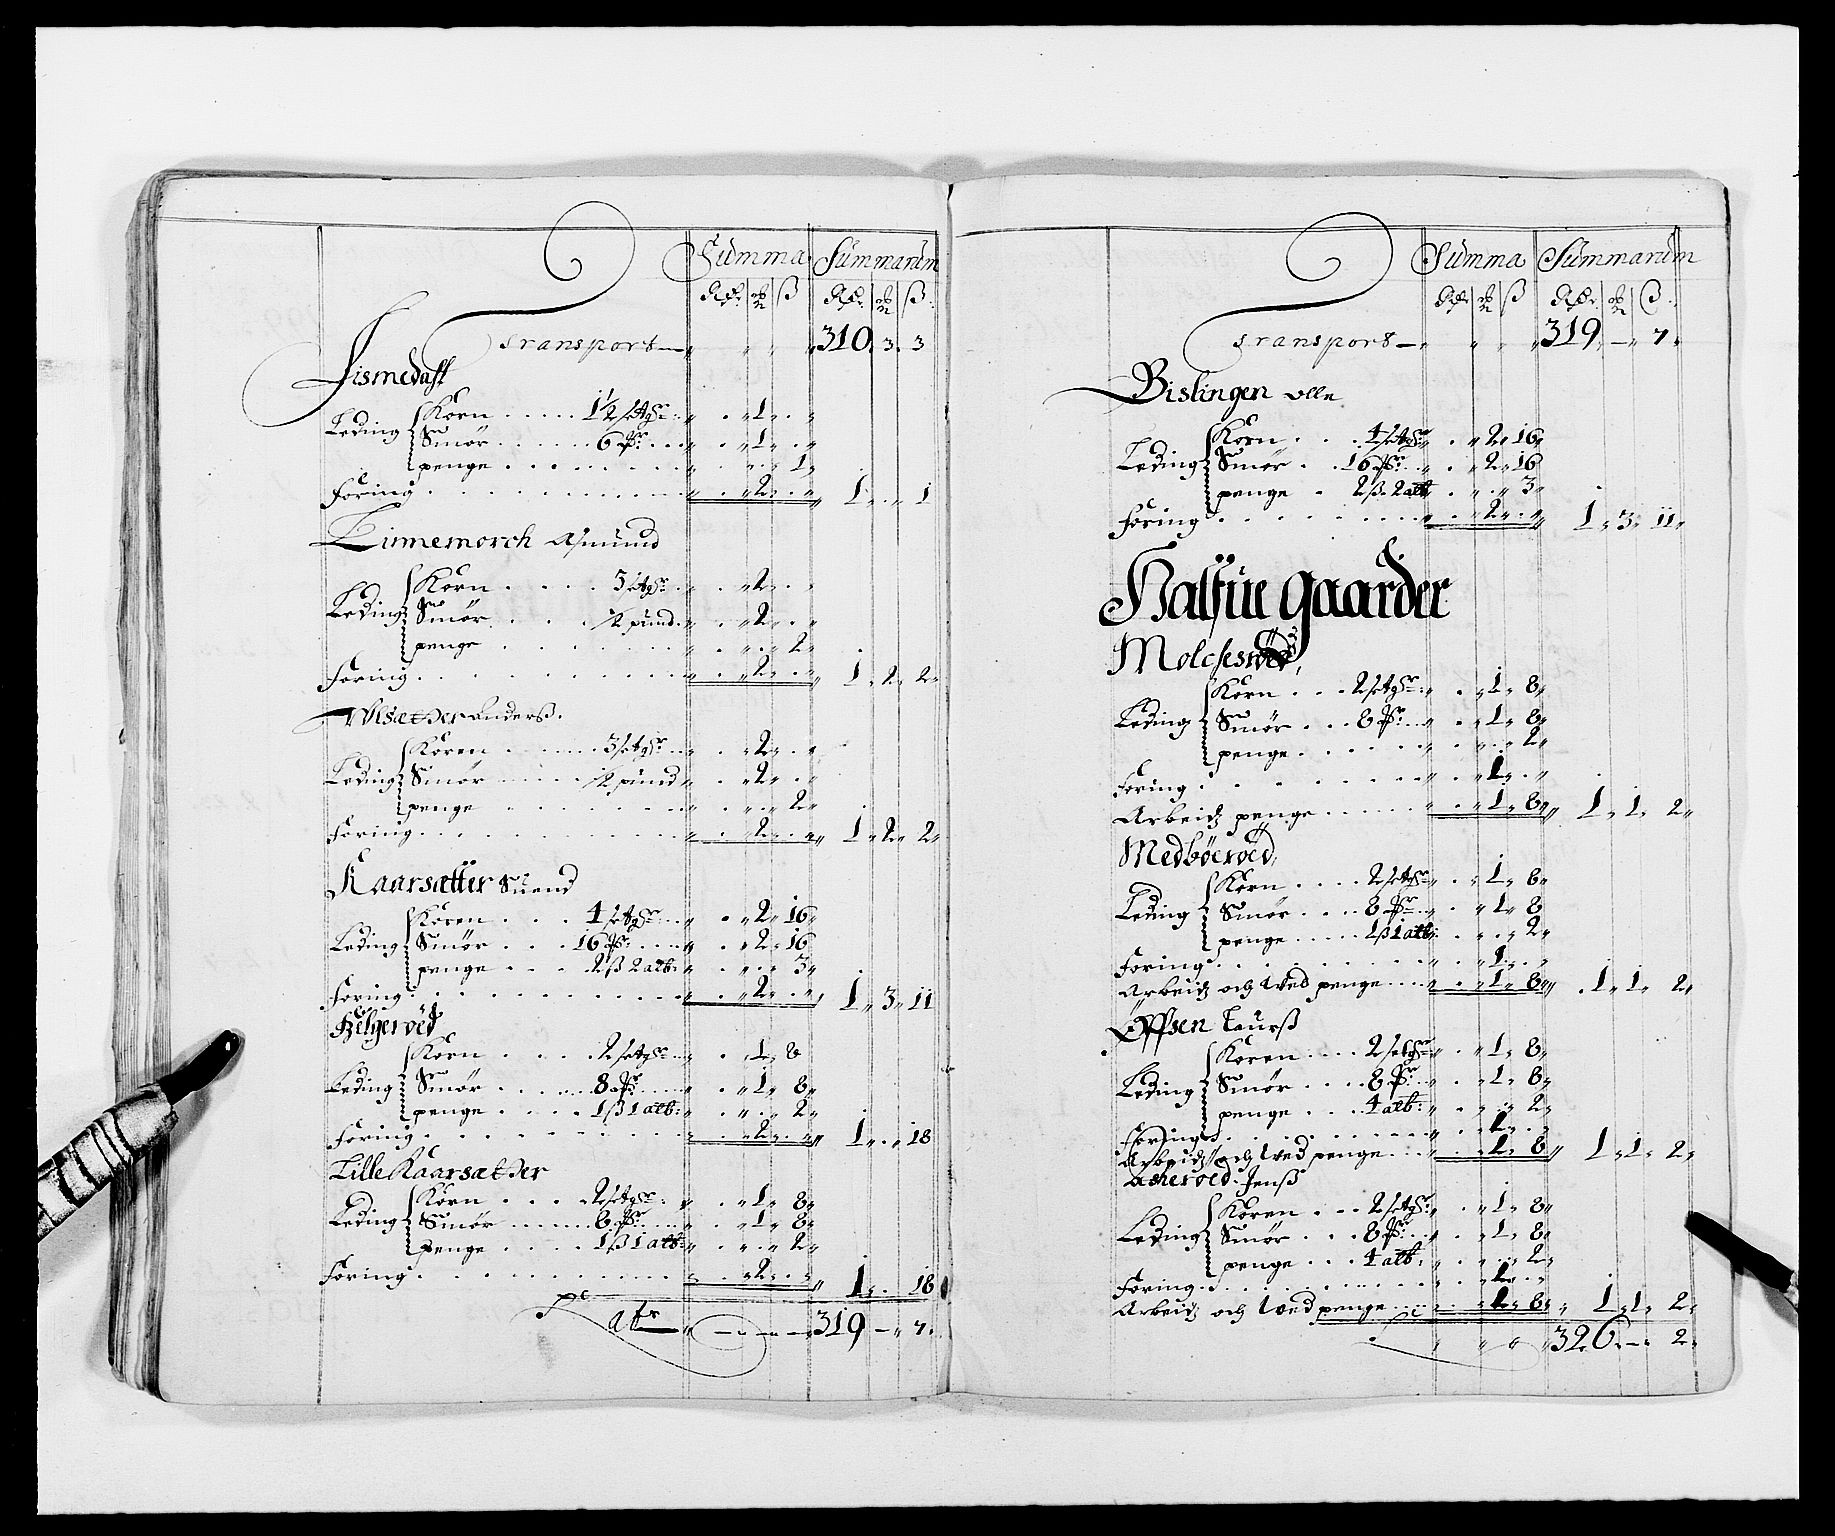 Summa Summarum
Rdr ort ß Rdr ort ß
Transport — 310 3 3
Fismedall
Leding Korn 1½ setgr: 1
Smør 6 pr 1
penge 1
Foring 2 1 1
Linnemorch Asmund
Leding Korn 3 setgr 2
Smør ½ pund 2
penge 2
Foring 2 1 2 2
Ulsætter Anderß.
Leding Koren 3 setgr 2
Smør ½ pund 2
penge 2
Foring 2 1 2 2
Kaarsætter Suend
Leding Koren 4 setgr 2 16
Smør 16 pr 2 16
penge 2 ß 2 alb: 3
Foring 2 1 3 11
Helgeröed
Leding Korn 2 setgr 1 8
Smør 8 pr 1 8
penge 1 ß 1 alb: 2
Foring 2 1 18
Lille Kaarsætter
Leding Korn 2 setgr: 1 8
Smør 8 pr 1 8
penge 1 ß 1 alb: 2
Foring 2 1 18
319 — 7
Summa Summarum
Rdr ort ß Rdr ort ß
Transport — 319 — 7
Bislingen olle
Leding Korn 4 setgr 2 16
Smør 16 pr 2 16
penge 2 ß. 2 alb 3
Foring 2 1 3 11
Halfue gaarder
Molchesröed,
Leding Korn 2 setgr 1 8
Smør 8 pr 1 8
penge 2
Foring 1
Arbeidz penge 1 8 1 1 2
Medböeröed,
Leding Korn 2 setgr 1 8
Smør 8 pr 1 8
penge 1 ß 1 alb: 2
Foring 1
Arbeidz och Ved penge 1 8 1 1 2
Øffsen Laurß
Leding Koren 2 setgr 1 8
Smør 8 pr 1 8
penge 4 alb: 2
Foring 1
Arbeidz och Ved penge 1 8 1 1 2
Acheroed Jenß
Leding Koren 2 setgr 1 8
Smør 8 pr: 1 8
penge 4 alb: 2
Foring 1
Arbeidz och Ved penge 1 8 1 1 2
326 — 2